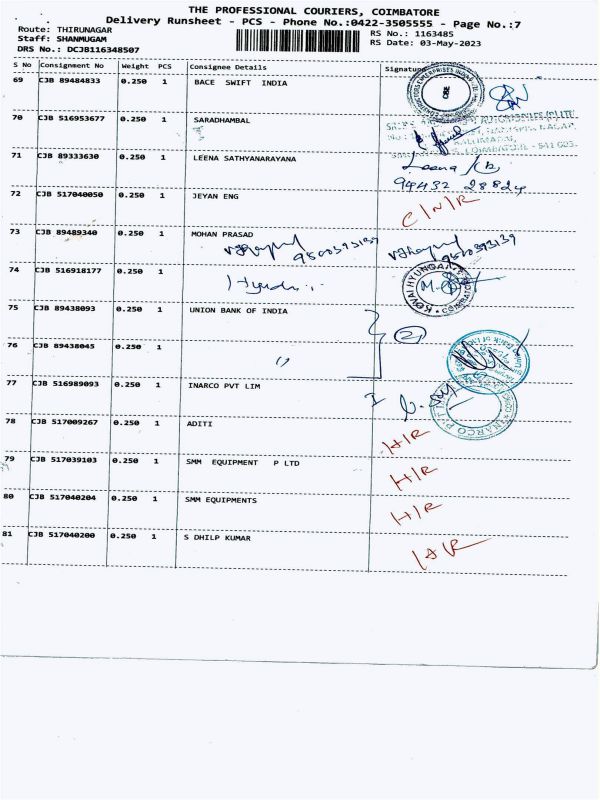 THE PROFESSIONAL COURIERS, COIMBATORE
Delivery Runsheet - PCS - Phone No.:0422-3505555 - Page No.:7
Route: THIRUNAGAR
RS No.: 1163485
Staff: SHANMUGAM
RS Date: 03-May-2023
DRS No.: DCJB116348507
S No Consignment No Weight PCS Consignee Details Signature
69 CJB 89484833 0.250 1 BACE SWIFT INDIA
CBE
70 CJB 516953677 0.250 1 SARADHAMBAL
71 CJB 89333630 0.250 1 LEENA SATHYANARAYANA
COIMBATORE - 641 005.
Leena
94432 28824
72 CJB 517040050 0.250 1 JEYAN ENG
C/N/R
73 CJB 89489340 0.250 1 MOHAN PRASAD
9500393139 9500393139
74 CJB 516918177 0.250 1
KOVAI HYUNDAI
75 CJB 89438093 0.250 1 UNION BANK OF INDIA
2
76 CJB 89438045 0.250 1 "
77 CJB 516989093 0.250 1 INARCO PVT LIM
78 CJB 517009267 0.250 1 ADITI
H/R
79 CJB 517039103 0.250 1 SMM EQUIPMENT P LTD
H/R
80 CJB 517040204 0.250 1 SMM EQUIPMENTS
H/R
81 CJB 517040200 0.250 1 S DHILP KUMAR